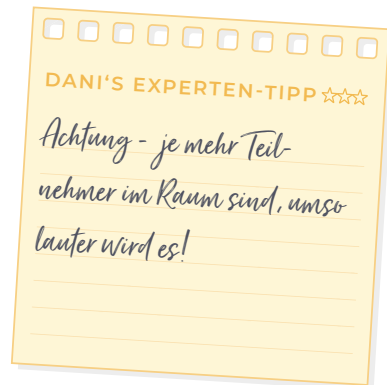 DANI‘S EXPERTEN-TIPP
Achtung - je mehr Teil-
nehmer im Raum sind, umso
lauter wird es!